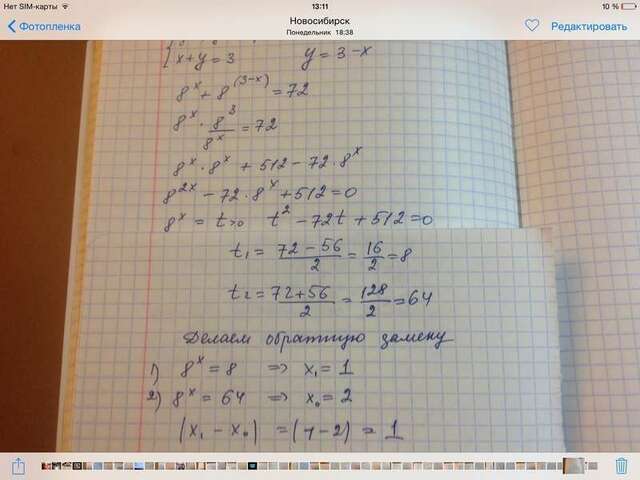 Нет SIM-карты 13:11 10 %
Фотопленка Новосибирск Редактировать
Понедельник 18:38
x+y=3 y=3-x
8^x+8^(3-x)=72
8^x · 8^3/8^x =72
8^x · 8^x + 512 - 72 · 8^x
8^2x - 72 · 8^x + 512=0
8^x = t>0 t^2 - 72t + 512=0
t1 = (72-56)/2 = 16/2 = 8
t2 = (72+56)/2 = 128/2 = 64
Делаем обратную замену
1) 8^x = 8 => x1 = 1
2) 8^x = 64 => x0 = 2
|x1 - x0| = (1-2) = 1